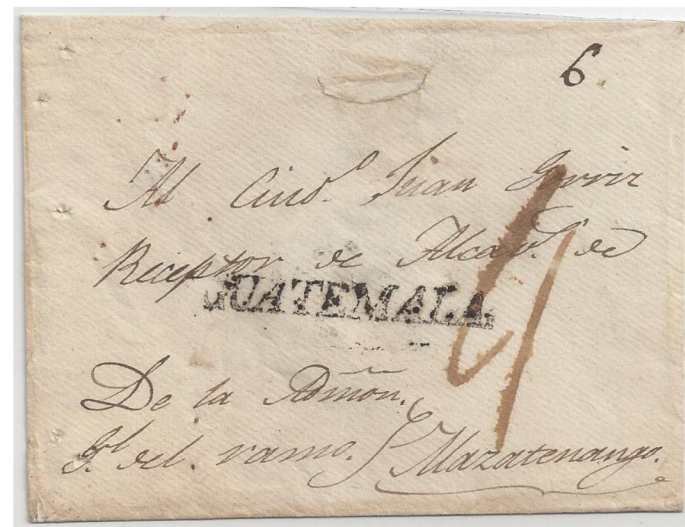 6.
Al Ciud.º Juan
Receptor de Alcav.s de
GUATEMALA
4
De la Admon.
G.l del ramo. Mazatenango.